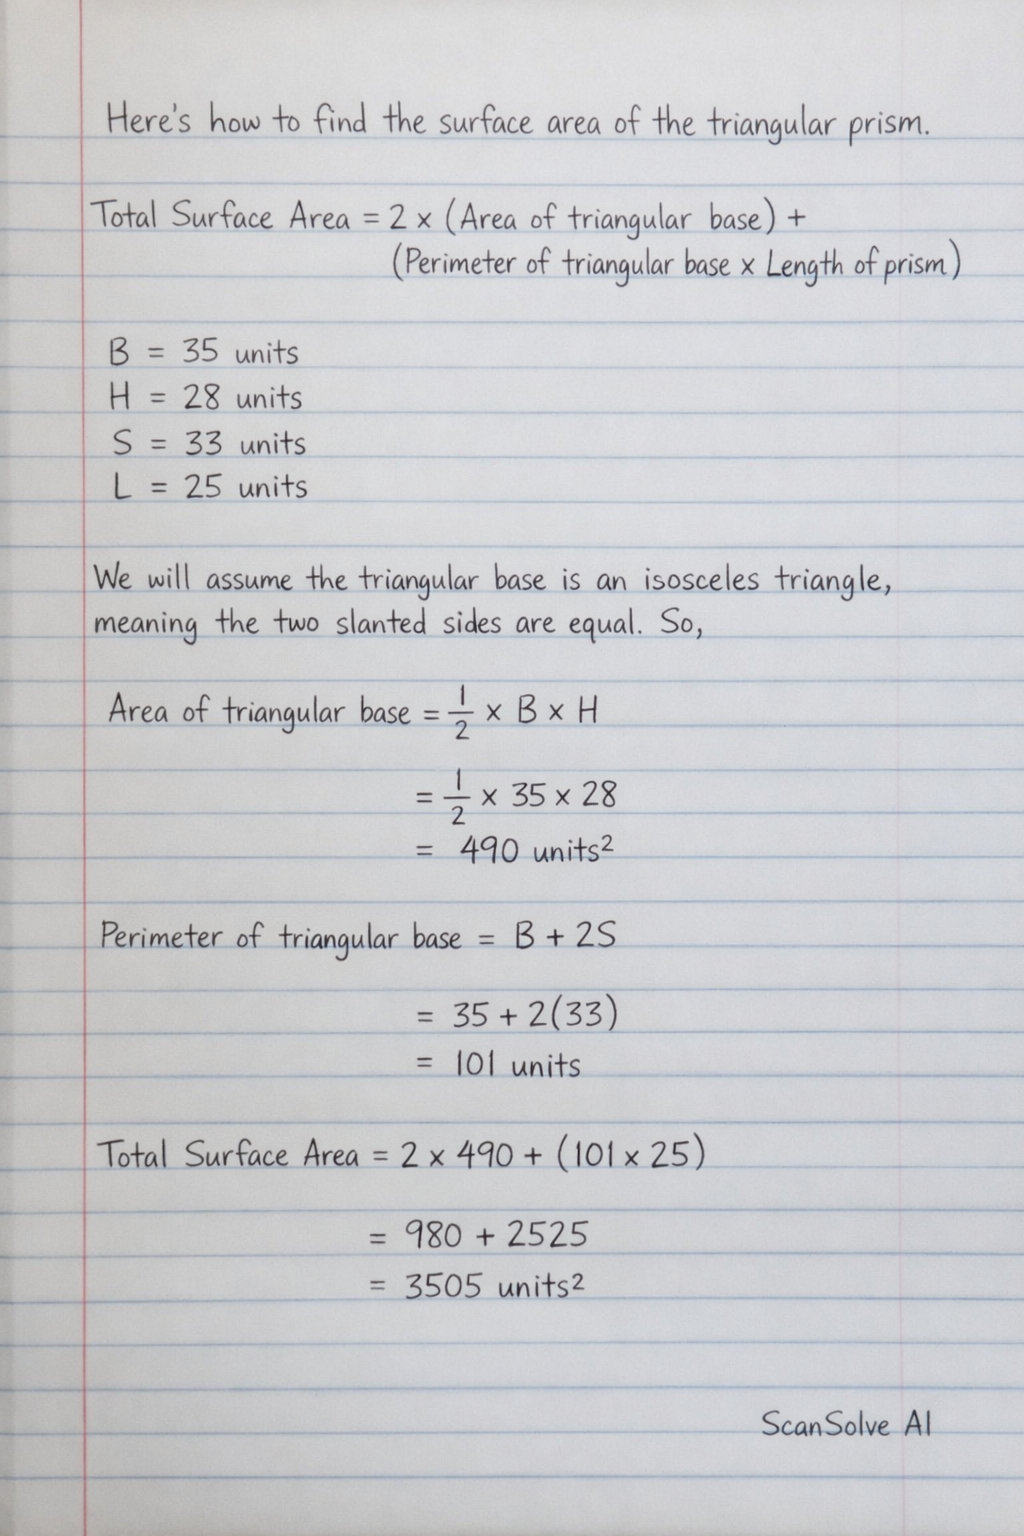 Here's how to find the surface area of the triangular prism.
Total Surface Area = 2 × (Area of triangular base) +
(Perimeter of triangular base × Length of prism)
B = 35 units
H = 28 units
S = 33 units
L = 25 units
We will assume the triangular base is an isosceles triangle,
meaning the two slanted sides are equal. So,
Area of triangular base = 1/2 × B × H
= 1/2 × 35 × 28
= 490 units²
Perimeter of triangular base = B + 2S
= 35 + 2(33)
= 101 units
Total Surface Area = 2 × 490 + (101 × 25)
= 980 + 2525
= 3505 units²
ScanSolve AI